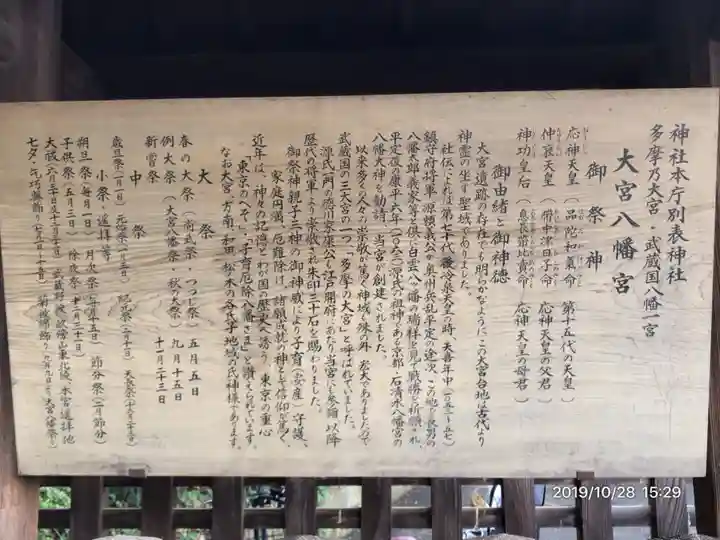 神社本庁別表神社
多摩乃大宮・武蔵国八幡一宮
大宮八幡宮
御祭神
応神天皇（品陀和氣命　第十五代の天皇）
仲哀天皇（帯中津日子命　応神天皇の父君）
神功皇后（息長帯比賣命　応神天皇の母君）
御由緒と御神徳
大宮遺跡の存在でも明らかなように この大宮台地は古代より
神霊の坐す聖域でありました。
社伝によれば第七十代後冷泉天皇の時、天喜年中（一〇五三～五七）
鎮守府将軍 源頼義公が奥州兵乱平定の途次、この地で長男の
八幡太郎義家等と倶に白雲八ツ幡の瑞祥を見て戦捷を祈願され、
平定後の康平六年（一〇六三）源氏の祖神である京都・石清水八幡宮の
八幡大神を勧請し、当宮が創建されました。
以来多くの人々の崇敬が篤く神域も殊の外 宏大でありましたので
武蔵国の三大宮の一つ「多摩の大宮」と呼ばれていました。
源氏一門の徳川家康公も江戸開府にあたり当宮にも参詣、以降
歴代の将軍より崇敬され朱印三十石を賜わりました。
御祭神親子三神の御神威により子育（安産）守護、
家庭円満、厄難除け、諸願成就の神として信仰が篤く、
近年は、神々の記憶とわが国の歴史へ誘う、東京の重心
「東京のへそ」、「子育厄除八幡さま」と讃えられています。
なお大宮、方南、和田、松ノ木の各氏子地域の氏神様であります。
大祭
春の大祭（尚武祭・つつじ祭）　五月五日
例大祭（大宮八幡祭・秋の大祭）　九月十五日
新嘗祭　十一月二十三日
中祭
歳旦祭（一月一日）　元始祭（一月三日）　紀元祭（二月十一日）
小祭・遥拝等
朔旦祭（毎月一日）　月次祭（毎月十五日）　節分祭（二月節分）
子供祭（五月三日）　除夜祭（十二月三十一日）
大祓（六月三十日・十二月三十一日）
七夕・乞巧奠飾り（七月五日～十五日）